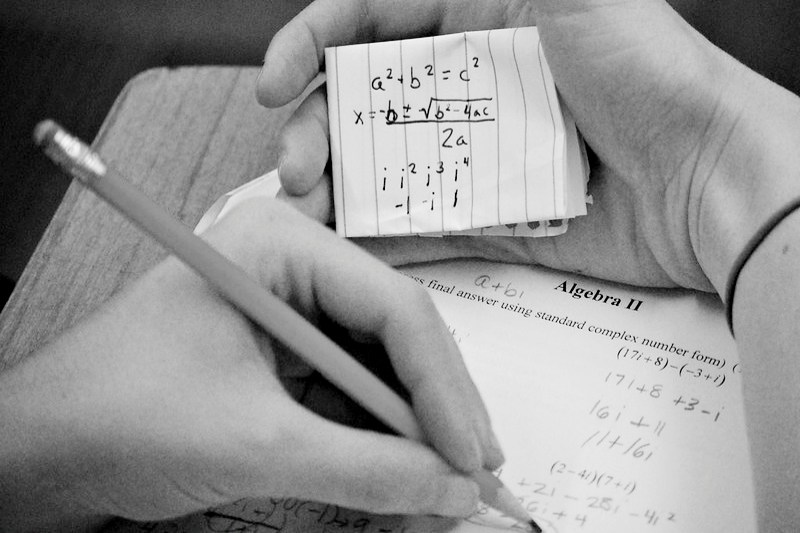 a² + b² = c²
x = -b ± √b² - 4ac
2a
i i² i³ i⁴
-1 -i 1
a+bi
Algebra II
final answer using standard complex number form)
(17i+8)-(-3+i)
17i+8 +3-i
16i + 11
11+16i
(2-4i)(7+i)
+2i - 28i - 4i²